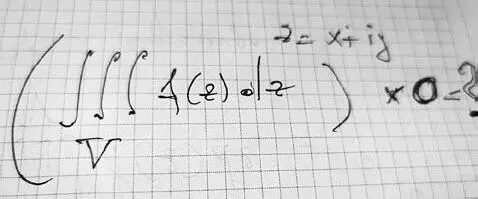 z = x+iy
( ∭ f(z) • dz ) × 0 = ?
V